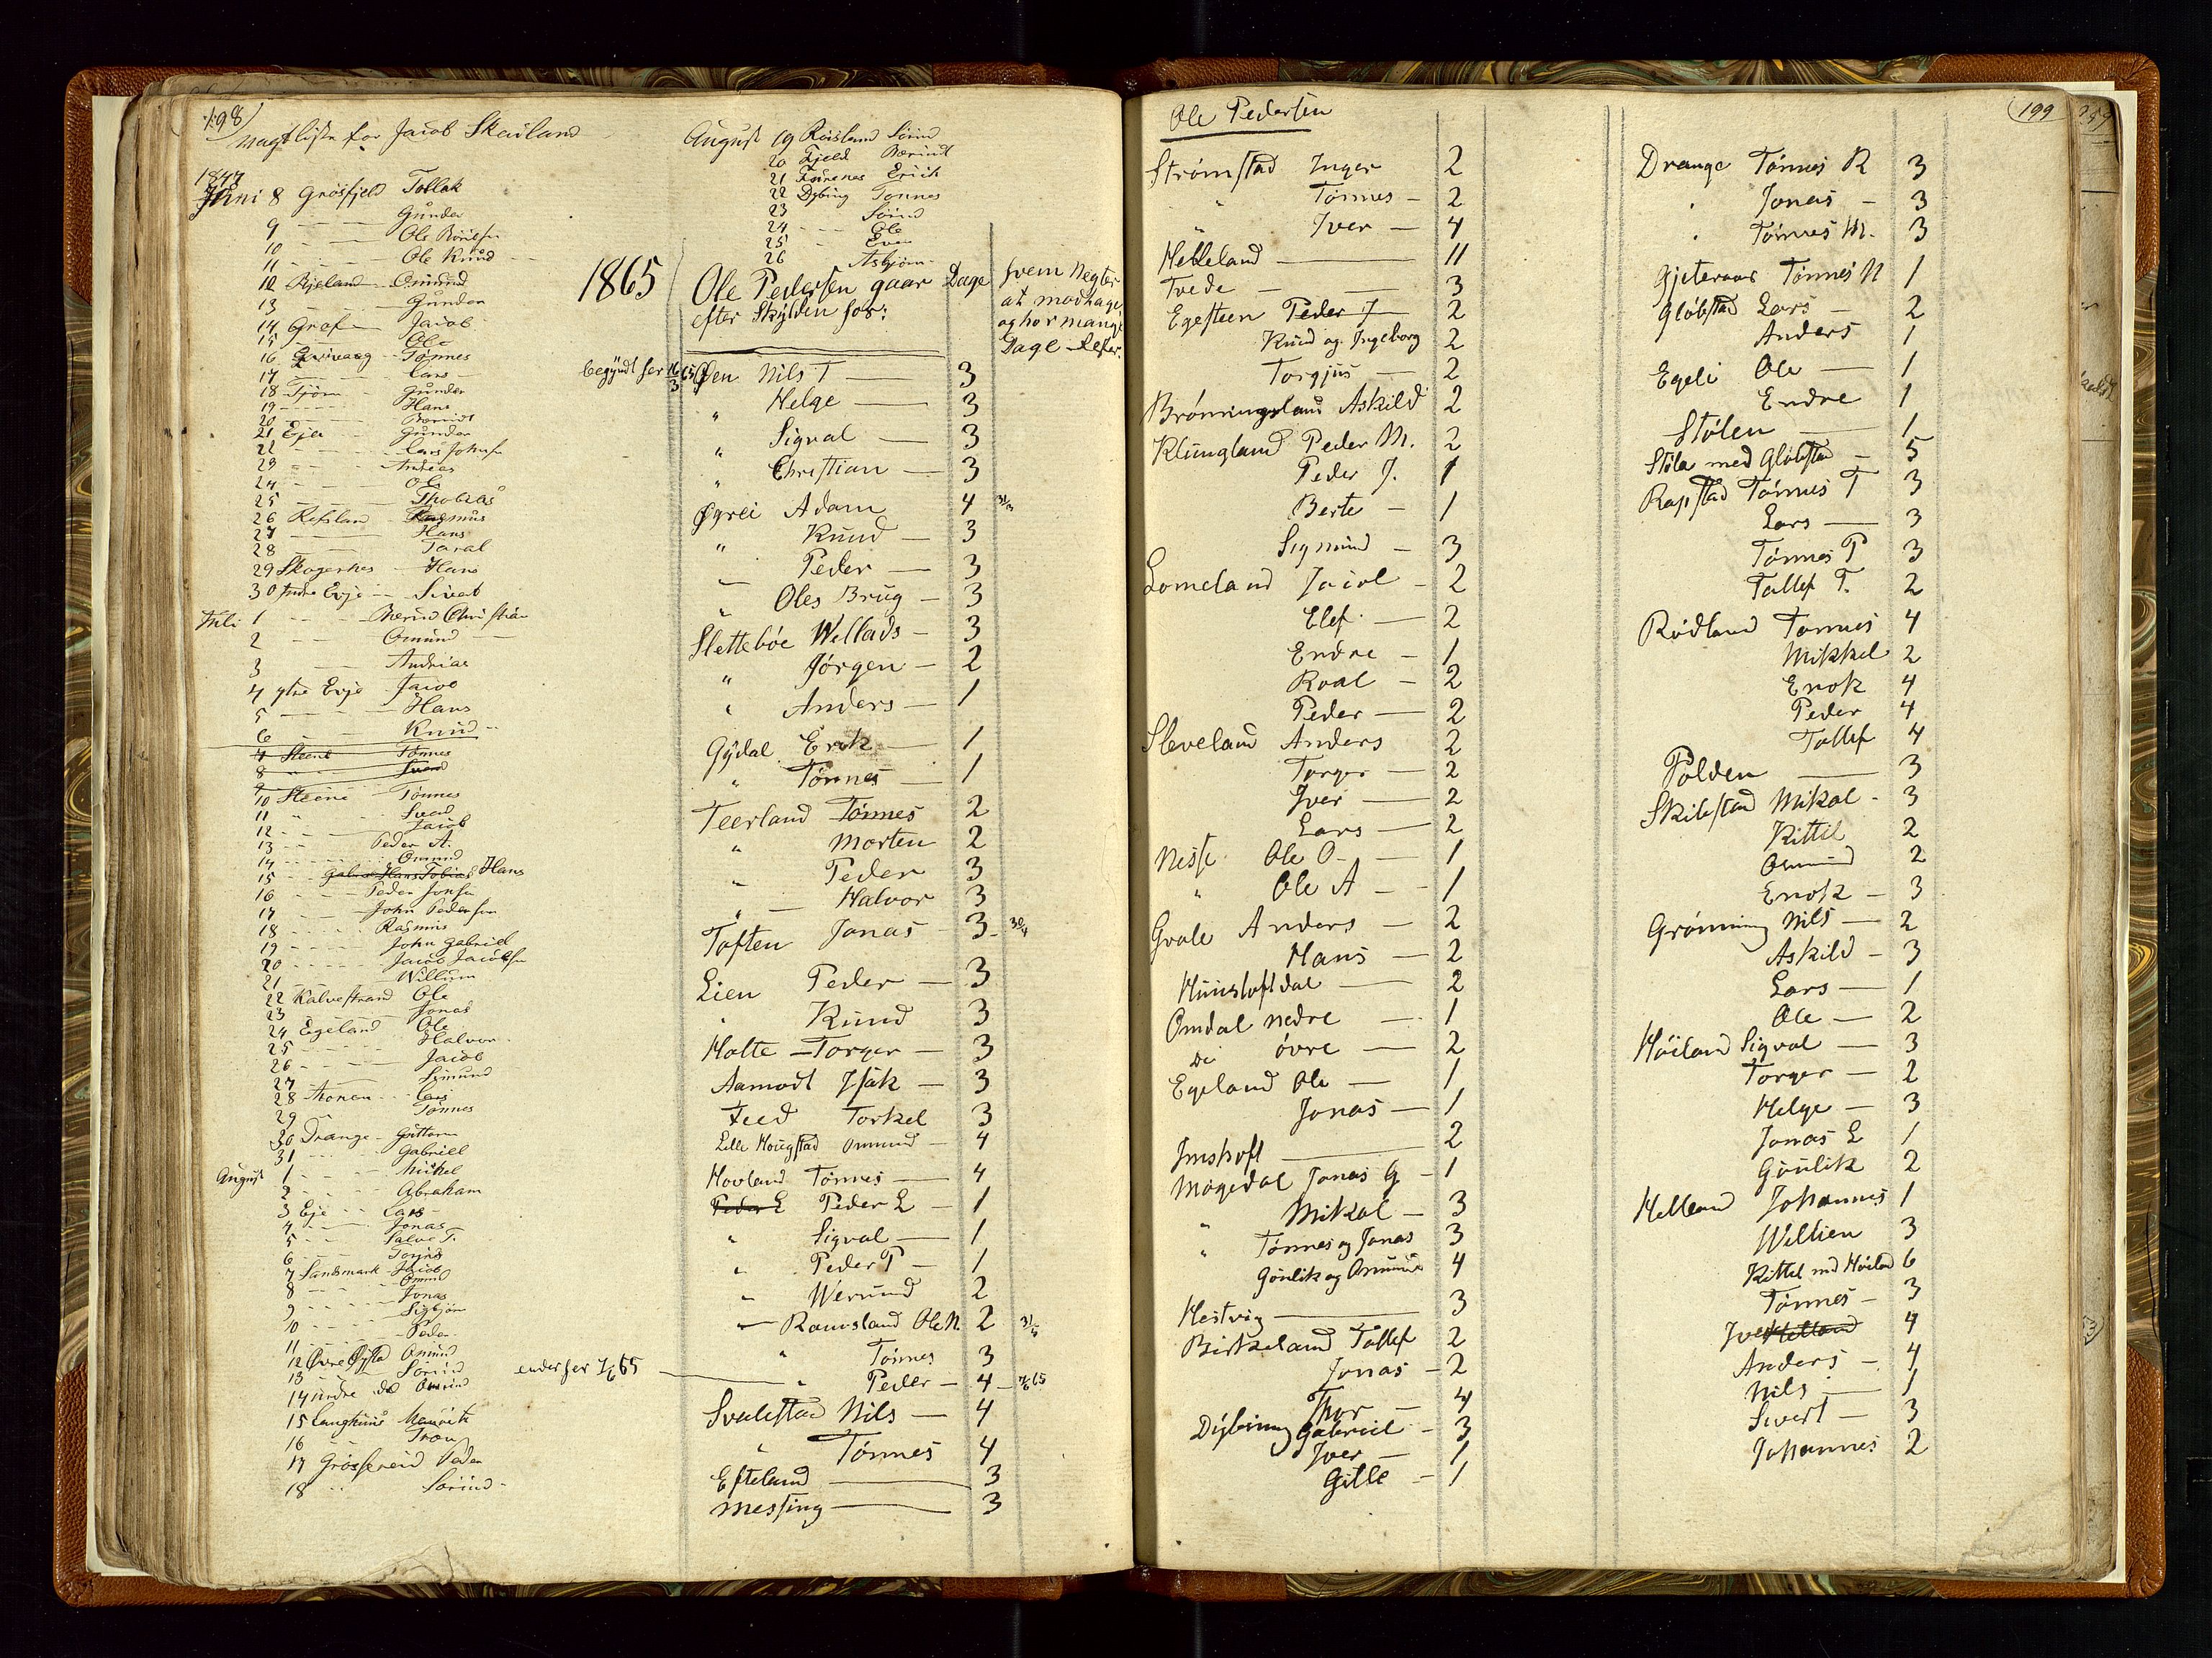 198)
Vagtliste for Jacob Skailand
1847
Juni 8 Grøsfjeld Tollak
9 — — Gunder
10 — — Ole
11 — — Ole Knud
12 Bjeland Omund
13 — Gunder
14 Graf — Jacob
15 — Ole
16 — Tønnes
17 — Lars
18 Tjørn — Gunder
19 — Hans
20 — Berent
21 Eje — Gunder
22 — Lars Johnsn
23 — Andreas
24 — Ole
25 — Thobias
26 Refsland — Rasmus
27 — Hans
28 — Taral
29 Skogestad — Hans
30 Indre Evje — Sivert
Juli 1 — Berent Christian
2 — Omund
3 — Andreas
4 ytre Evje — Jacob
5 — Hans
6 — Knud
7 Steene Tønnes
8 " Svend
9
10 Steene — Tønnes
11 " Svend
12 — Jacob
13 — Peder A.
14 — Omund
15 — Gabriel Hans Tobias Hans
16 — Peder Jonsn
17 — John Pedersen
18 — Rasmus
19 — John Gabriel
20 — Jacob Jacobsn
21 — Willum
22 Kalvestrand Ole
23 Jonas
24 Egeland Ole
25 — Halvor
26 — Jacob
27 — Sømund
28 Aanen Lars
29 Tønnes
30 Drange — Guttorm
31 — Gabriel
August 1 — Mikel
2 — Abraham
3 Eje — Lars
4 — Jonas
5 — Salve T.
6 — Tønnes
7 Sandsmark — Jacob
8 — Omund
9 — Jonas
10 — Sigbjørn
11 — Peder
12 Øvre Omund
13 — Sørind
14 nedre do Omund
15 Langhuus
16 — Tron
17 Grøsfereid Peder
18 " Sørind
August 19 Røisland Sørin
20 Fjeld Berent
21 Furenes Erich
22 Dybing Tonnes
23 Sørin
24 — Ole
25 — Even
26 Asbjørn
1865 Ole Pedersen gaar efter Skylden for: Dage hvem negter at modtage og hor mange Dage Lefter.
begyndt her 16/3 65
Øen Nils T — 3
" Helge — 3
" Sigval — 3
" Christian — 3
Øgrei Adam 4 31/3
" Knud — 3
— Peder — 3
" Oles Brug — 3
Slettebøe Wellads — 3
" Jørgen — 2
" Anders — 1
Gydal Erik — 1
" Tønnes — 1
Teerland Tønnes 2
" Morten 2
" Peder 3
" Halvor 3
Toften Jonas 3 30/4
Lien Peder — 3
" Knud 3
Holte — Torger — 3
Aamodt Isak — 3
Feed Torkel 3
Lille Hougstad Omund — 4
Hovland Tønnes — 4
Peder L Peder L — 1
" Sigval — 1
" Peder P — 1
" Werund 2
— Ramsland Ole N. 2 31/5
" Tønnes 3
ender her 7/6 65 — " Peder — 4 7/6 65
Svalestad Nils — 4
" Tønnes 4
Efteland — 3
Messing — 3
Ole Pedersen
Strømstad Inger 2
" Tønnes — 2
" Iver — 4
Helleland — 11
Tvede — 3
Egesteen Peder J 2
Knud og Ingeborg 2
Torgjus — 2
Brønningsland Askild 2
Klungland Peder M. 2
Peder J. 1
Berte — 1
Sigmund — 3
Lomeland Jacob — 2
Elef — 2
Endre — 1
Roal — 2
Peder — 2
Sleveland Anders 2
Torger — 2
Iver — 2
Lars — 2
Nesse Ole O — 1
" Ole A — 1
Gvale Anders — 2
Hans — 2
Hunstoftdal — 2
Omdal nedre — 1
Do øvre — 2
Egeland Ole — 1
Jonas — 1
Imshoft — 2
Mogedal Jonas G — 1
" Mikal — 3
" Tønnes og Jonas 3
Gonlik og Omund 4
Hestvig — 3
Birkeland Tollef 2
Jonas — 2
Thor — 4
Dybing Gabriel — 3
Iver — 1
Gitle — 1
199
Drange Tønnes R 3
" Jonas — 3
" Tønnes M. 3
Gjeteraas Tønnes N 1
Gløbstad Lars — 2
Anders 1
Egeli Ole — 1
Endre 1
Stølen — 1
Støle med Gløbstad — 5
Rapstad Tønnes T 3
Lars — 3
Tønnes P 3
Tollef T. 2
Rødland Tønnes 4
Mikkel 2
Enok 4
Peder 4
Tollef 4
Polden — 3
Skibstad Mikal — 3
Kittil 2
Omund 2
Enok — 3
Grønning Nils — 2
Askild — 3
Lars — 1
Ole — 2
Høiland Sigval — 3
Torger — 2
Helge — 3
Jonas L 1
Gønlik 2
Helland Johannes 1
Willien 3
Kittel med Høiland 6
Tønnes — 3
Iver Helland 4
Anders — 4
Nils — 1
Sivert — 3
Johannes 2